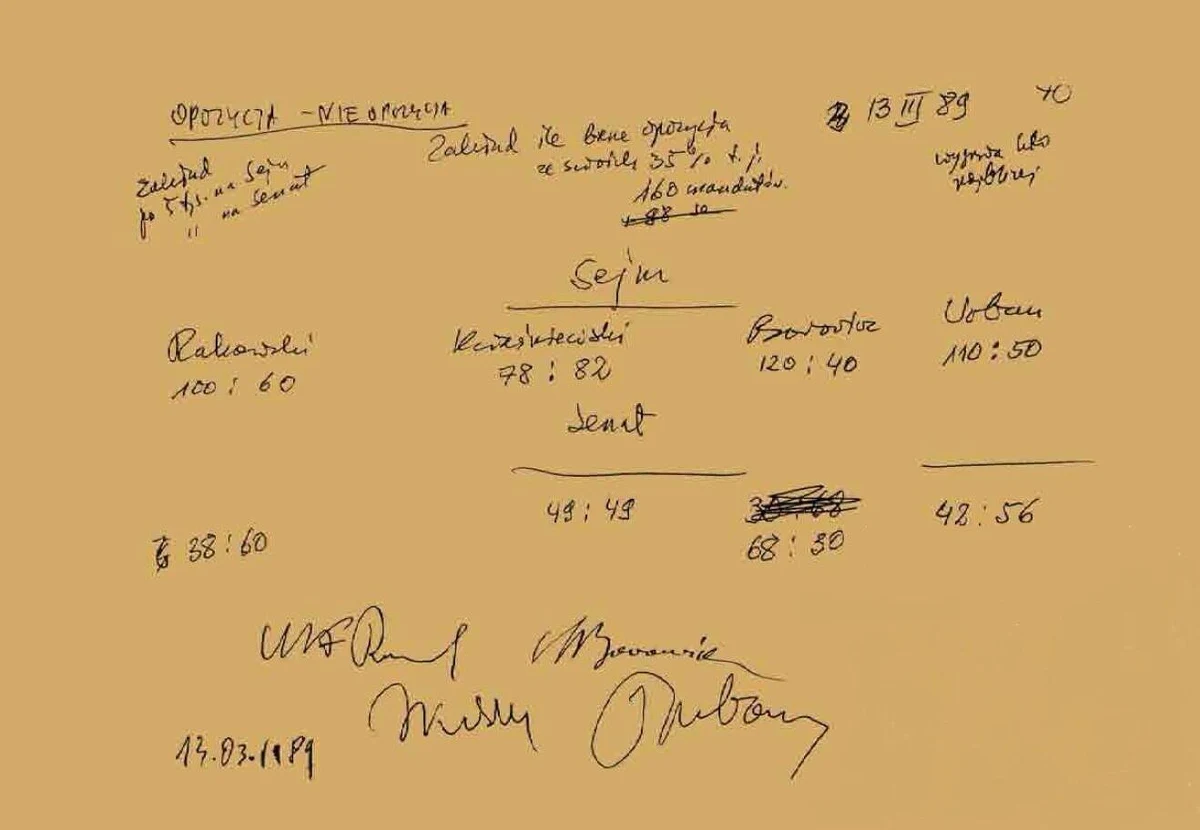 OPOZYCJA - NIE OPOZYCJA
13 III 89
Zakład
po 5 tys. na Sejm
" na Senat
Zakład ile bierze opozycja
ze swoich 35% t.j.
160 mandatów.
wygrywa kto
najbliżej
Sejm
Rakowski
100 : 60
Kwaśniewski
78 : 82
Borowicz
120 : 40
Urban
110 : 50
Senat
38 : 60
49 : 49
68 : 30
42 : 56
13.03.1989